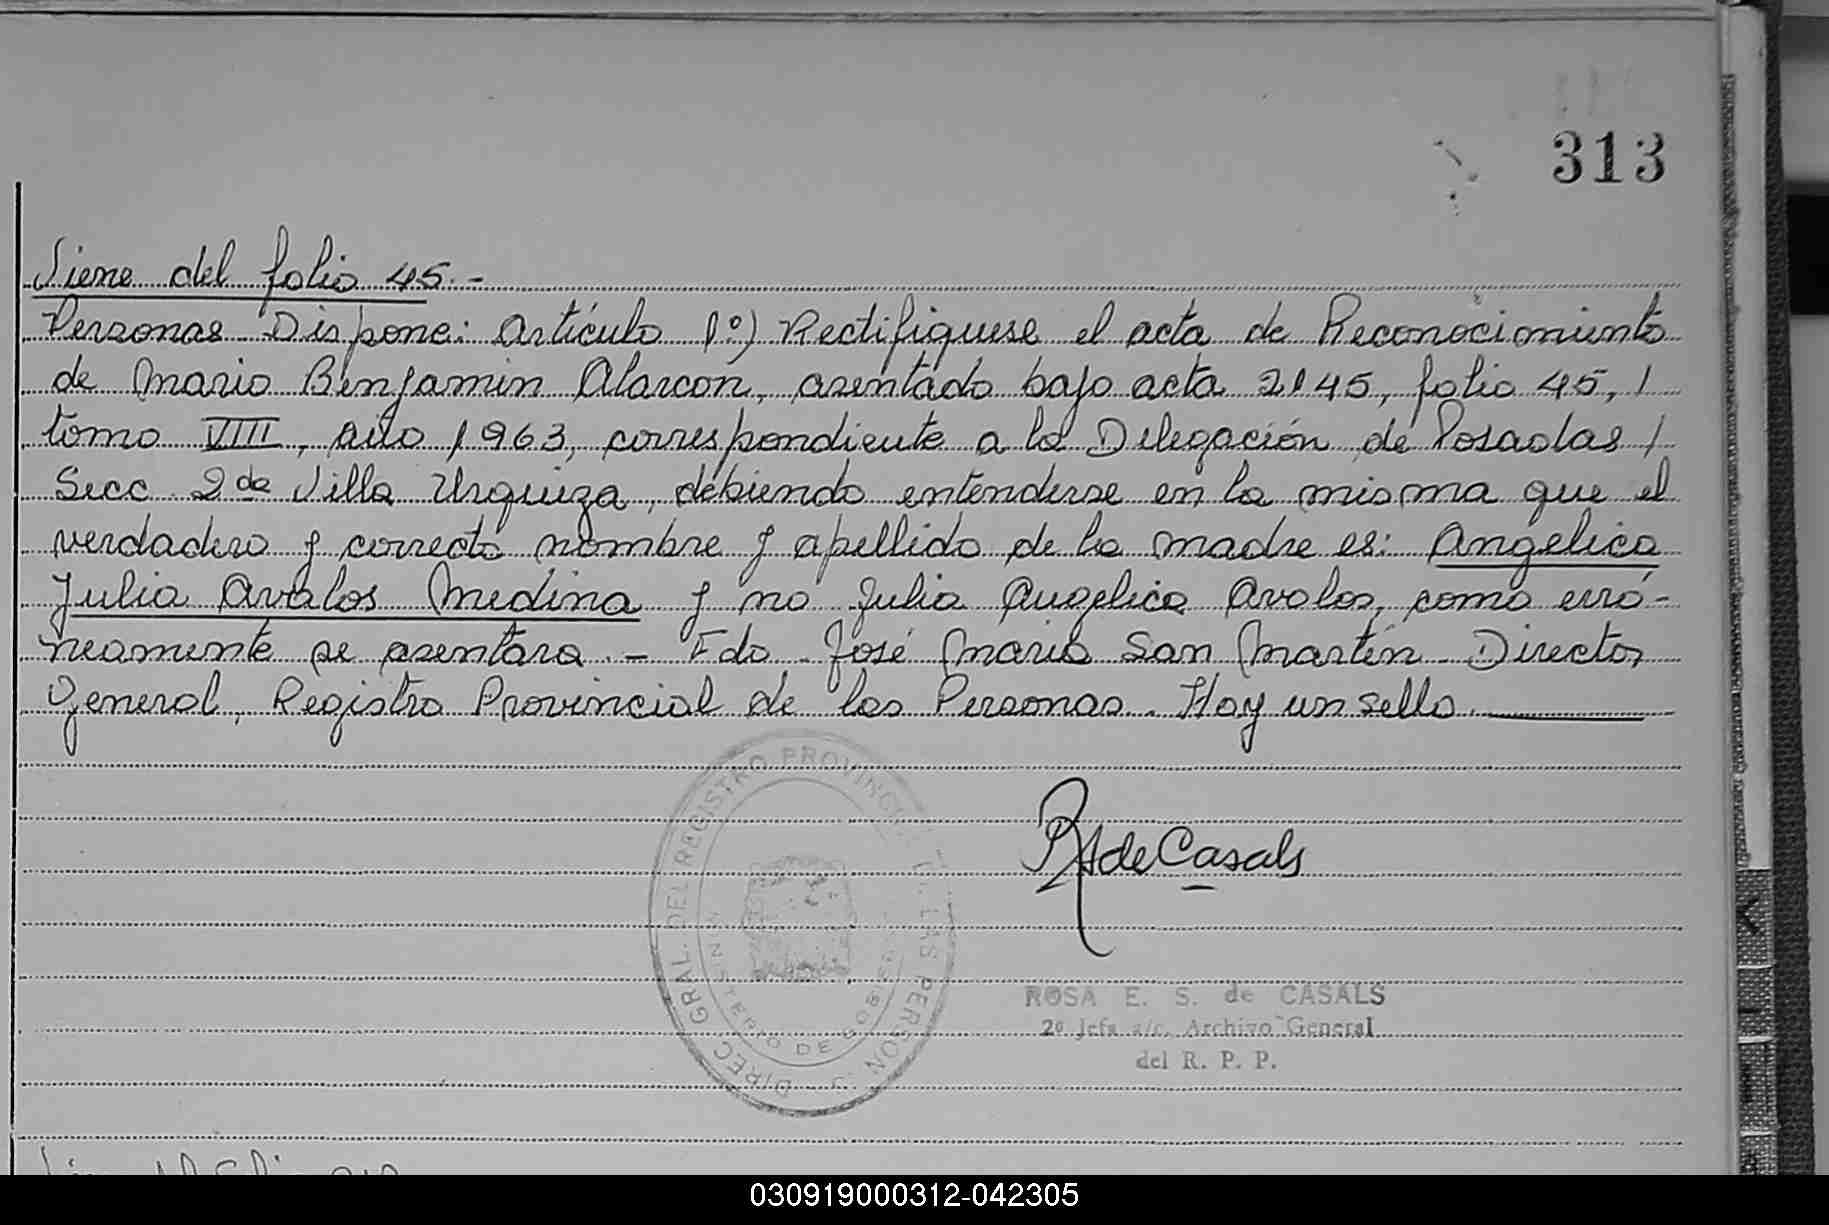 313
Viene del folio 45.-
Personas Dispone: Artículo 1º) Rectifiquese el acta de Reconocimiento
de Mario Benjamin Alarcon, asentado bajo acta 2145, folio 45, /
tomo VIII, año 1963, correspondiente a la Delegación de Posadas /
Secc. 2da Villa Urquiza, debiendo entenderse en la misma que el
verdadero y correcto nombre y apellido de la madre es: Angelica
Julia Avalos Medina y no Julia Angelica Avalos, como erró-
neamente se asentara.- Fdo. José Maria San Martín - Director
General, Registro Provincial de las Personas. Hay un sello.
DIREC. GRAL. DEL REGISTRO PROVINCIAL DE LAS PERSON
MINISTERIO DE GOBIERNO
de Casals
ROSA E. S. de CASALS
2º Jefa a/c. Archivo General
del R. P. P.
030919000312-042305